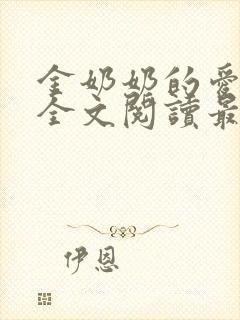 金奶奶的愛
全文閱讀最
伊恩